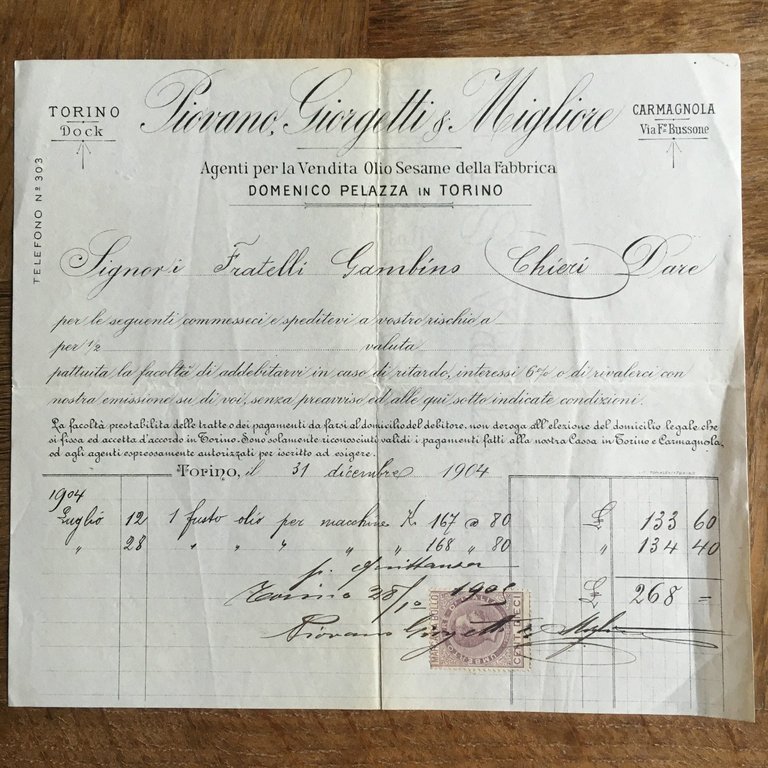 TORINO
Dock
Piovano, Giorgetti & Migliore
CARMAGNOLA
Via Fr. Bussone
TELEFONO Nº 303
Agenti per la Vendita Olio Sesame della Fabbrica
DOMENICO PELAZZA IN TORINO
Signori Fratelli Gambino Chieri Dare
per le seguenti commesseci e speditevi a vostro rischio a
per ½ valuta
pattuita la facoltà di addebitarvi in caso di ritardo, interessi 6% o di rivalerci con
nostra emissione su di voi, senza preavviso ed alle qui sotto indicate condizioni.
La facoltà prestabilita delle tratte o dei pagamenti da farsi al domicilio del debitore, non deroga all'elezione del domicilio legale che
si fissa ed accetta d'accordo in Torino. Sono solamente riconosciuti validi i pagamenti fatti alla nostra Cassa in Torino e Carmagnola,
od agli agenti espressamente autorizzati per iscritto ad esigere.
Torino, il 31 dicembre 1904
1904
Luglio 12 1 fusto olio per macchine K. 167 @ 80 L. 133 60
" 28 " " " " " 168 " 80 " 134 40
p. quittanza
Torino 28/10 1905 L. 268 =
Piovano Giorgetti & Migliore